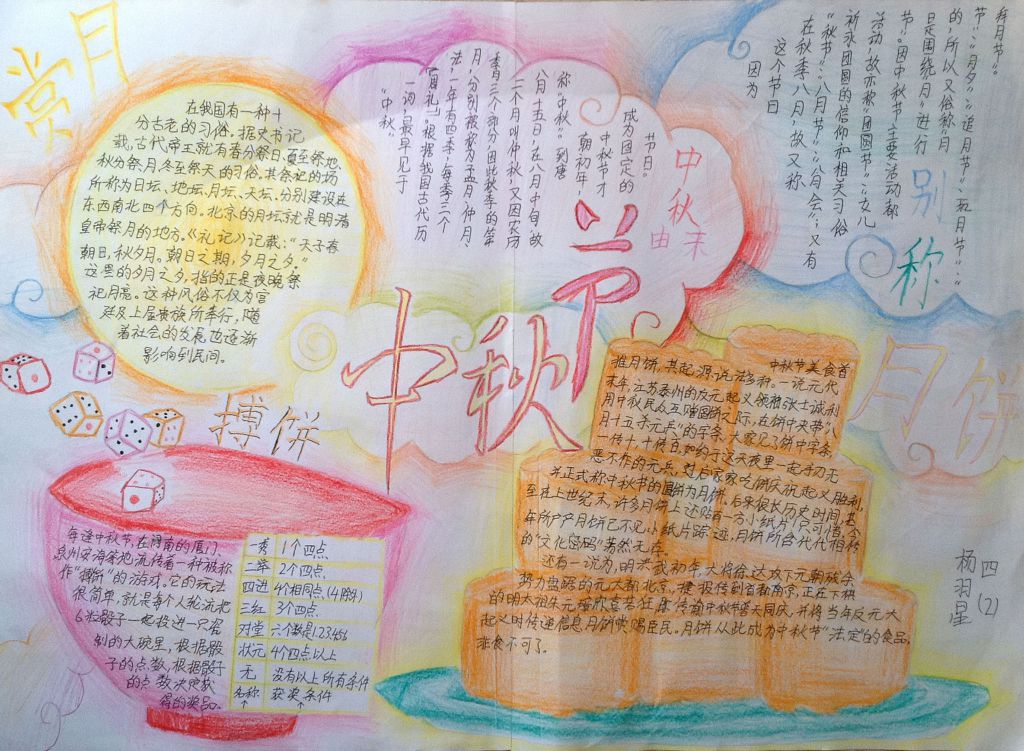 赏月
在我国有一种十
分古老的习俗。据史书记
载,古代帝王就有春分祭日、夏至祭地、
秋分祭月、冬至祭天的习俗。其祭祀的场
所称为日坛、地坛、月坛、天坛。分别建设在
东西南北四个方向。北京的月坛就是明清
皇帝祭月的地方。《礼记》记载:“天子春
朝日,秋夕月。朝日之期,夕月之夕。”
这里的夕月之夕,指的正是夜晚祭
祀月亮。这种风俗不仅为宫
廷及上层贵族所奉行,随
着社会的发展,也逐渐
影响到民间。
中秋节
中秋由来
“中秋”
一词,最早见于
《周礼》。根据我国古代历
法,一年有四季,每季三个
月,分别被称为孟月、仲月、
季月三个部分,因此秋季的第
二个月叫仲秋,又因农历
八月十五日,在八月中旬,故
称“中秋”。到唐
朝初年,
中秋节才
成为固定的
节日。
别称
因为
这个节日
在秋季、八月,故又称
“秋节”、“八月节”、“八月会”;又有
祈求团圆的信仰和相关习俗
活动,故亦称“团圆节”、“女儿
节”。因中秋节的主要活动都
是围绕“月”进行
的,所以又俗称“月
节”、“月夕”、“追月节”、“玩月节”、“
拜月节”。
搏饼
每逢中秋节,在闽南的厦门、
泉州安海等地,流传着一种被称
作“搏饼”的游戏。它的玩法
很简单,就是每个人轮流把
6粒骰子一起投进一只瓷
制的大碗里,根据骰
子的点数,根据骰子
的点数决定获
得的奖品。
一秀 1个四点
二举 2个四点
四进 4个相同点(4除外)
三红 3个四点
对堂 六个数是123456
状元 4个四点以上
无 没有以上所有条件
名称 获奖条件
↑ ↑
月饼
中秋节美食首
推月饼,其起源,说法多种。一说元代
末年,江苏泰州的反元起义领袖张士诚利
月中秋民众互赠圆饼之际,在饼中夹带“八
月十五杀元兵”的字条,大家见了饼中字条,
一传十,十传百,如约于这天夜里一起手刃无
恶不作的元兵,过后家家吃饼庆祝起义胜利,
并正式称中秋节的圆饼为月饼。后来很长历史时间,甚
至在上世纪末,许多月饼上还贴有一方小纸片!只可惜,近
年所产月饼已不见小纸片踪迹,月饼所含代代相传
的“文化密码”荡然无存。
还有一说为,明太祖初年,大将徐达攻下元朝残余
势力盘踞的元大都北京,捷报传到首都南京,正在下棋
的明太祖朱元璋欣喜若狂,即传谕中秋节普天同庆,并将当年反元大
起义时传递信息月饼赏赐臣民。月饼从此成为中秋节“法定”的食品,
非食不可了。
四(2)
杨羽星